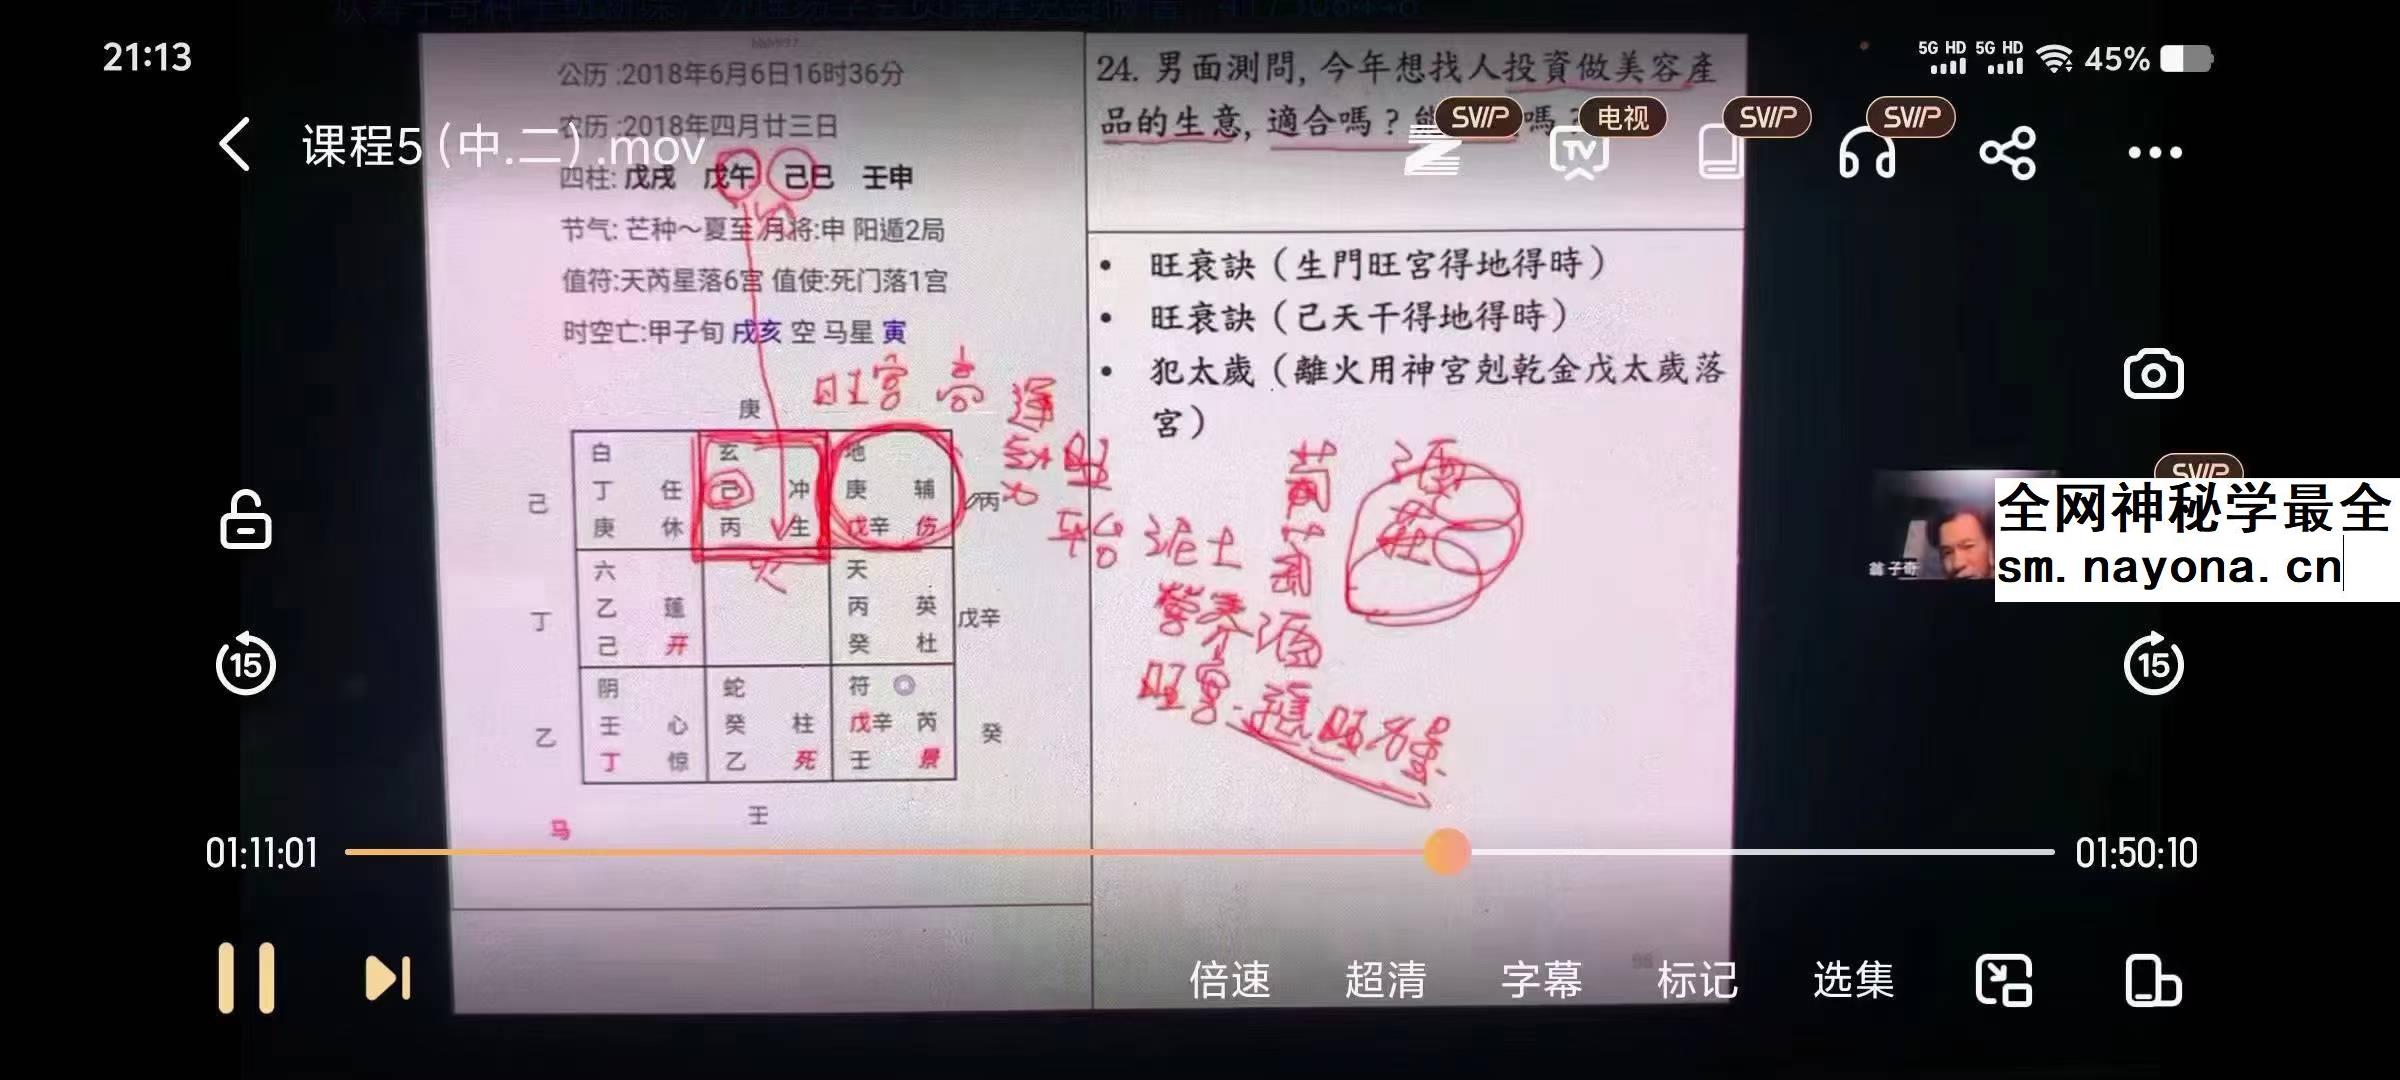 21:13
5G HD 5G HD 45%
课程5（中.二）.mov
SVIP 电视 SVIP SVIP
TV
hhh937
公历 :2018年6月6日16时36分
农历 :2018年四月廿三日
四柱: 戊戌 戊午 己巳 壬申
节气: 芒种～夏至 月将:申 阳遁2局
值符:天芮星落6宫 值使:死门落1宫
时空亡:甲子旬 戌亥 空 马星 寅
旺宮 高
運
庚
白 玄 地
己 丁 任 己 冲 庚 辅 丙
庚 休 丙 生 戊辛 伤
火
六 天
丁 乙 蓬 丙 英 戊辛
己 开 癸 杜
阴 蛇 符
乙 壬 心 癸 柱 戊辛 芮 癸
丁 惊 乙 死 壬 景
壬
马
24. 男面測問, 今年想找人投資做美容產
品的生意, 適合嗎? 能 嗎?
• 旺衰訣（生門旺宮得地得時）
• 旺衰訣（己天干得地得時）
• 犯太歲（離火用神宮剋乾金戊太歲落
宮）
葡 酒
萄 莊
泥土
營养酒
旺宮
翁子奇
SVIP
全网神秘学最全
sm.nayona.cn
15
15
01:11:01
01:50:10
倍速 超清 字幕 标记 选集